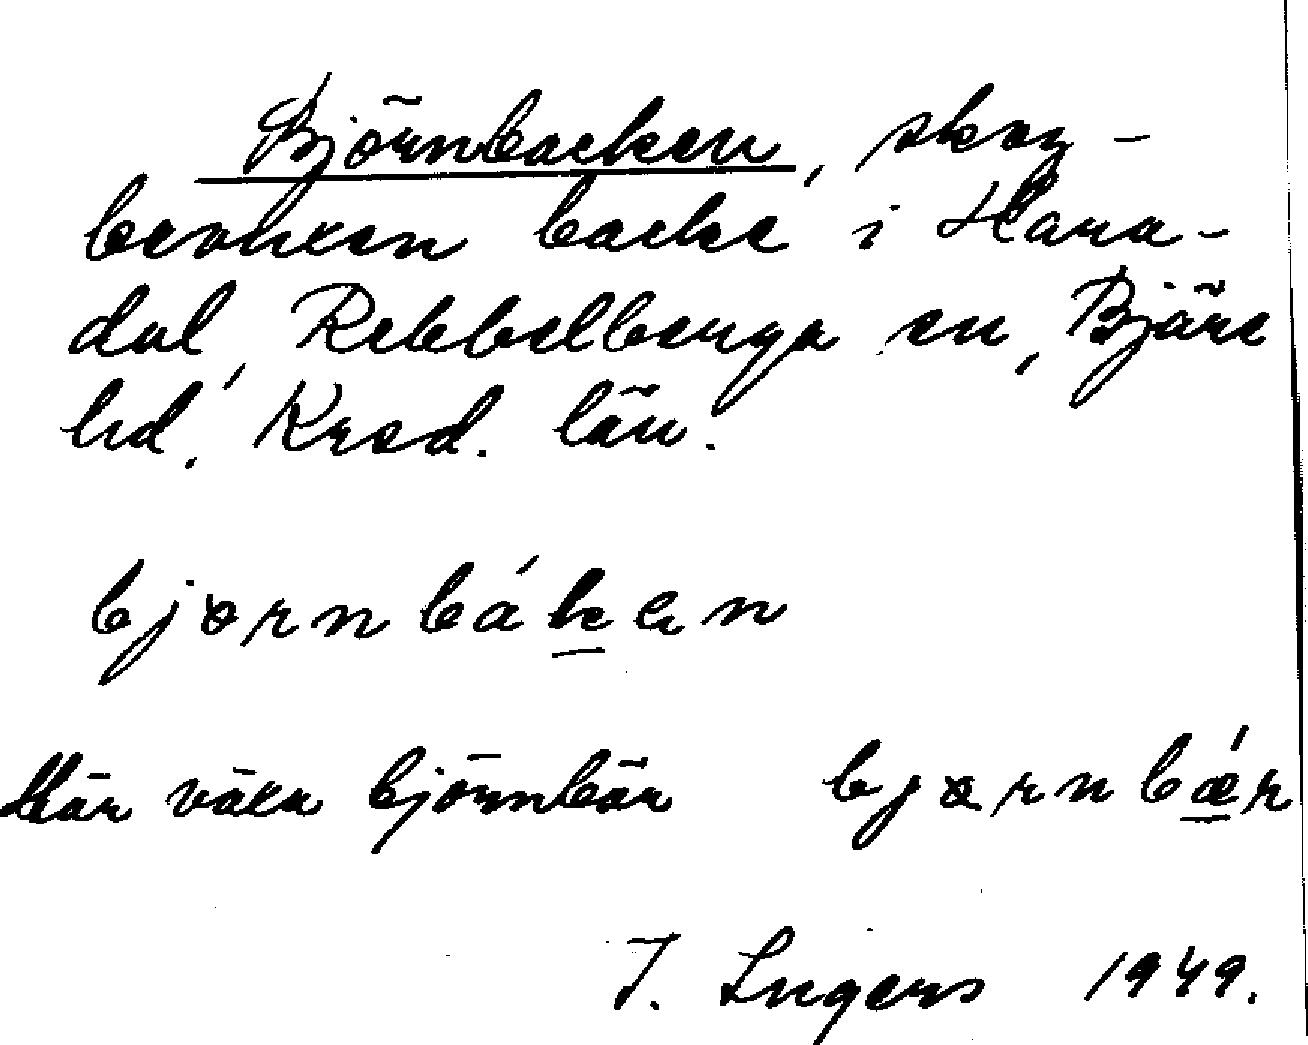 Björnbacken, skog-
bevuxen backe i Hara-
dal, Rebbelberga sn, Bjäre
hd. Krsd. län.
bjørnbáken
Här växa björnbär bjørnbǽr
I. Ingers 1949.